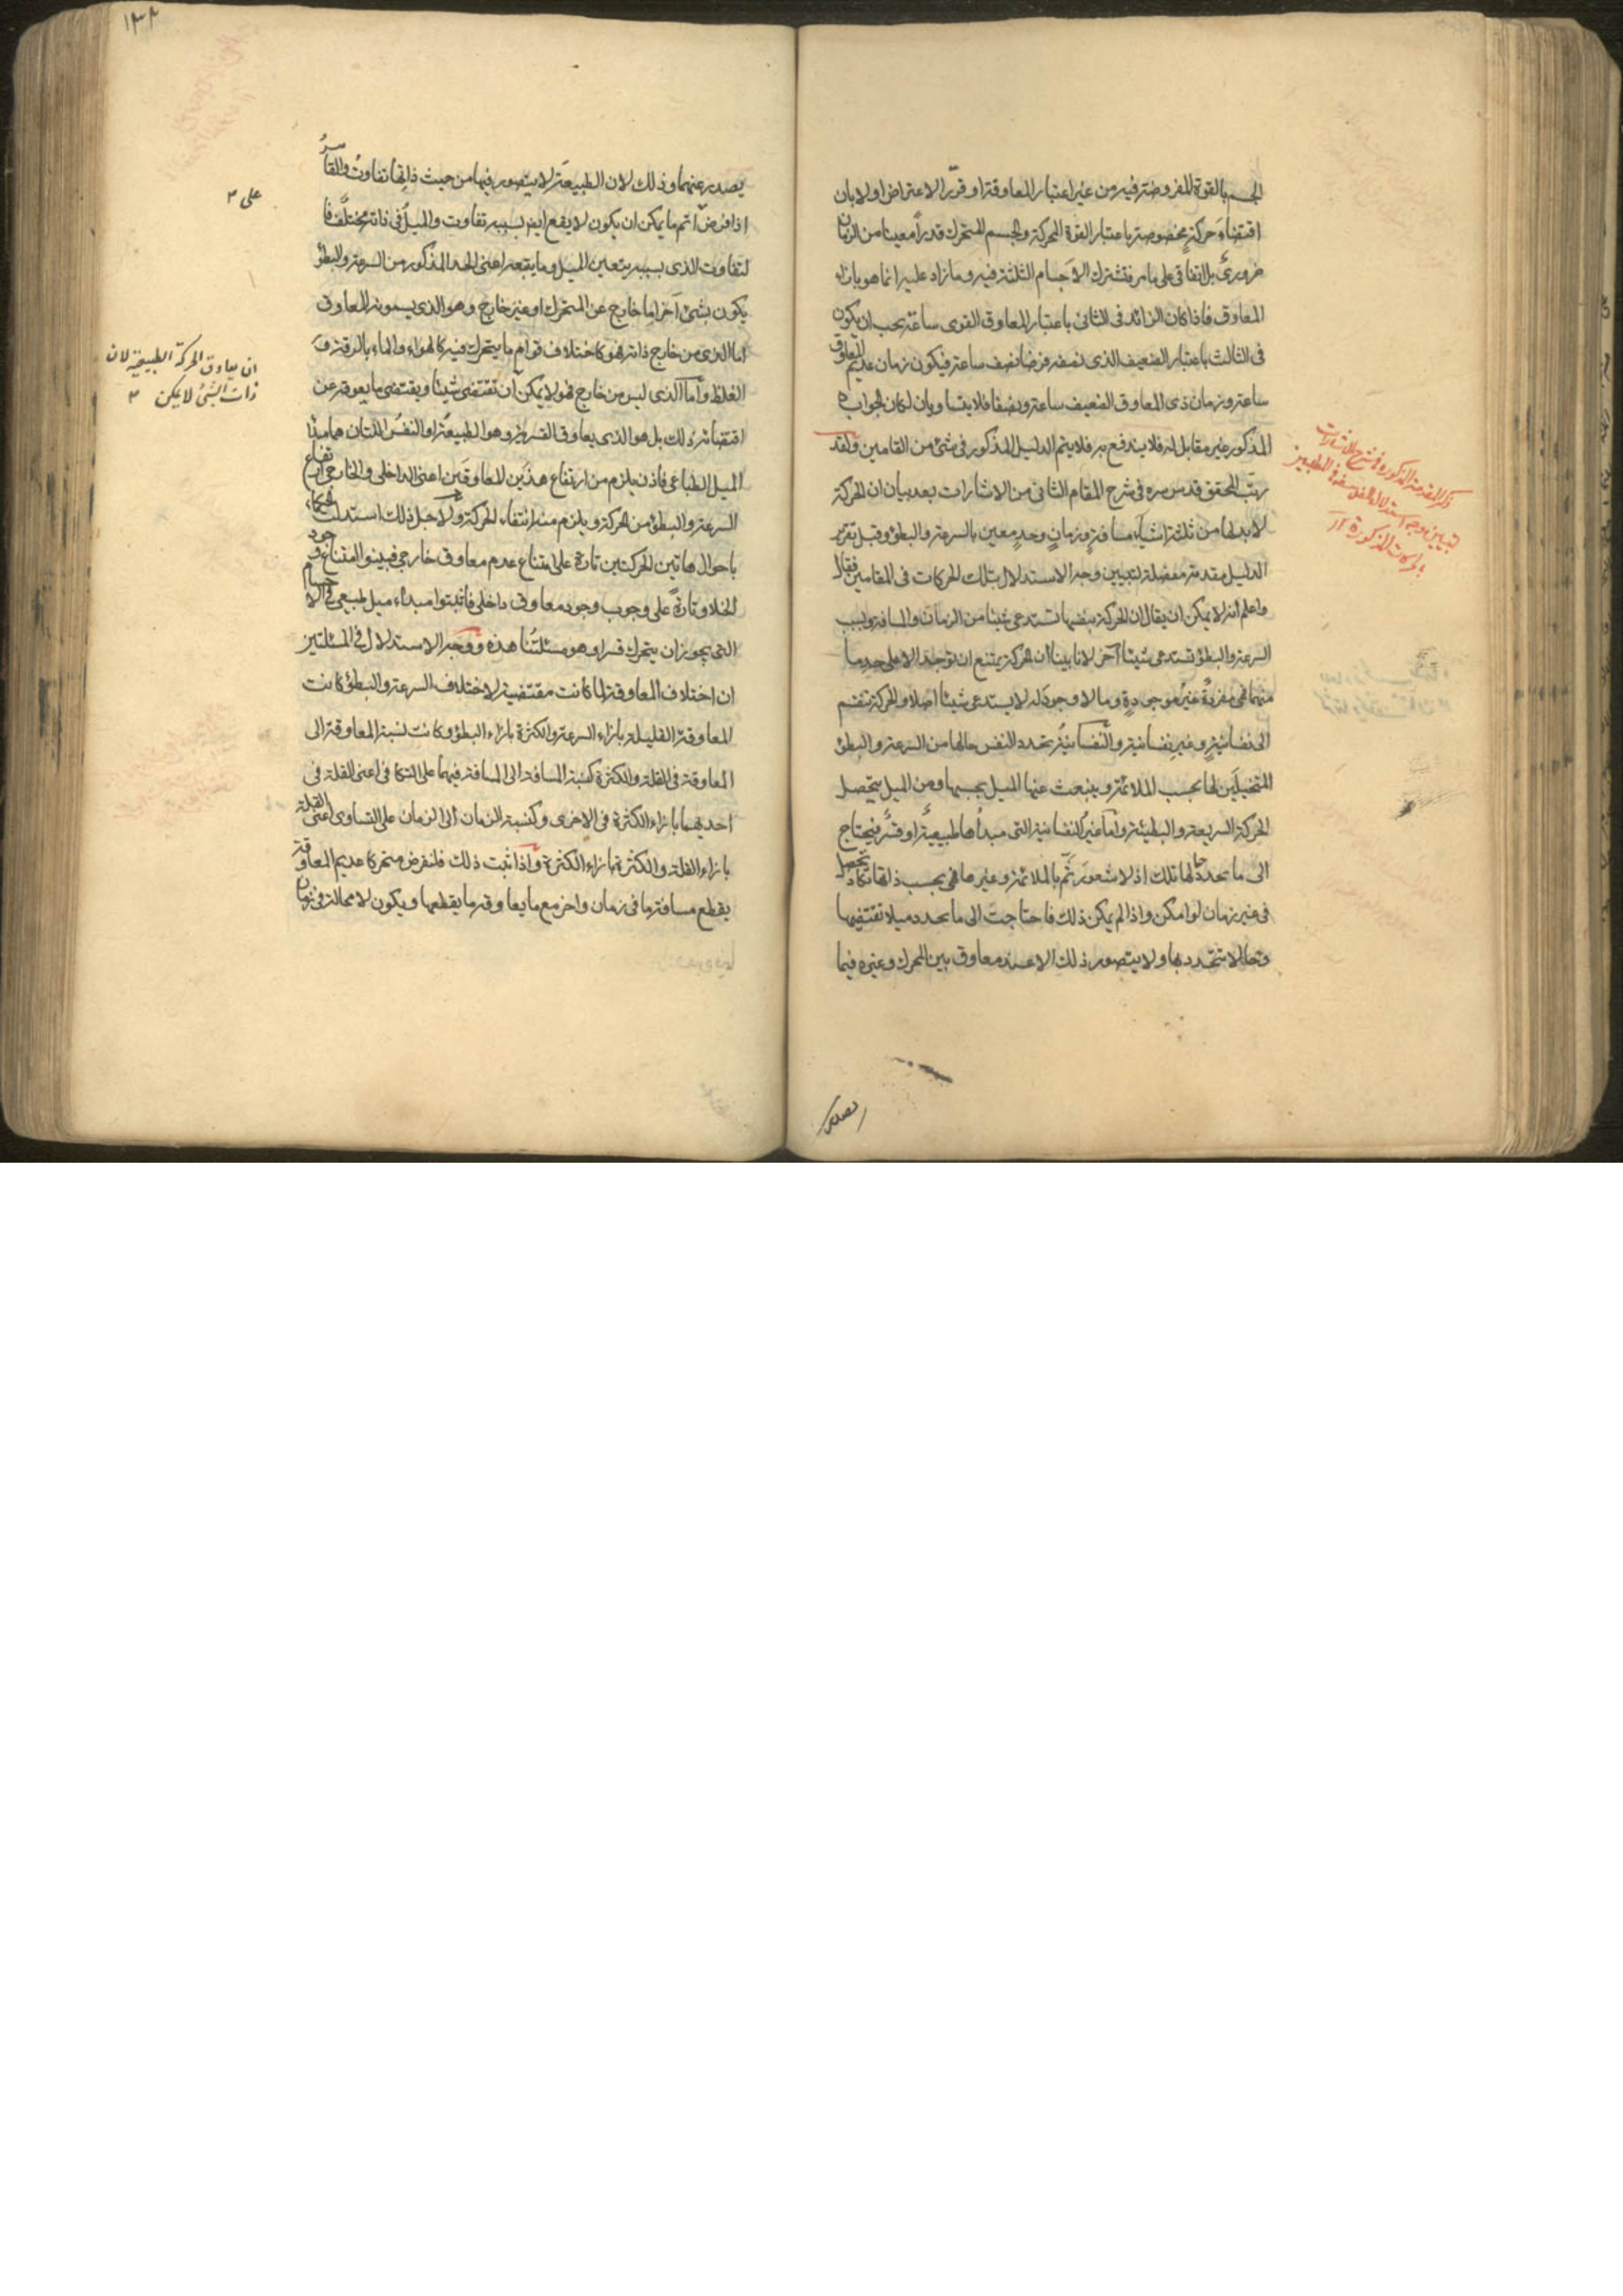 الجسم بالقوة المفروضة فيه من غير اعتبار المعاوقة او قرر الاعتراض اولا بان
اقتضاء حركة مخصوصة باعتبار القوة المحركة والجسم المتحرك قدرا معينا من الزمان
ضروري بالاتفاق على ما مر فتشترك الاجسام الثلثة فيه وما زاد عليه انما هو بازاء
المعاوق فاذا كان الزائد في الثاني باعتبار المعاوق القوى ساعة يجب ان يكون
في الثالث باعتبار الضعيف الذي نصفه فرضا نصف ساعة فيكون زمان عديم المعاوق
ساعة وزمان ذي المعاوق الضعيف ساعة ونصفا فلا يتساويان لكان الجواب
المذكور غير مقابل له فلا يندفع به فلا يتم الدليل المذكور في شئ من المقامين ولقد
رتب المحقق قدس سره في شرح المقام الثاني من الاشارات بعد بيان ان الحركة
لا بد لها من ثلثة اشياء مسافة وزمان وحد معين بالسرعة والبطؤ وقبل تقرير
الدليل مقدمة مفصلة لتبيين وجه الاستدلال بتلك الحركات في المقامين فقال
واعلم انه لا يمكن ان يقال ان الحركة بنفسها تستدعى شيئا من الزمان والمسافة وبسبب
السرعة والبطؤ تستدعى شيئا آخر لانا بينا ان الحركة يمتنع ان توجد الا على حد ما
منهما فهى مفردة غير موجودة وما لا وجود له لا يستدعى شيئا اصلا والحركة تنقسم
الى نفسانية وغير نفسانية والنفسانية تحدد النفس حالها من السرعة والبطؤ
المتخيلين لها بحسب الملائمة وينبعث عنها الميل بحسبها ومن الميل يتحصل
الحركة السريعة والبطيئة واما غير النفسانية التى مبدأها طبيعية او قسر فيحتاج
الى ما يحدد حالها تلك اذ لا شعور ثم بالملائمة وغيرها فهى بحسب ذلتها تكاد تحصل
في غير زمان لو امكن واذا لم يمكن ذلك فاحتاجت الى ما يحدد ميلا تقتضيها
وحالا تتحدد بها ولا يتصور ذلك الا عند معاوق بين المحرك وغيره فيما
ذكر المقدمة المذكورة في شرح الاشارات
يصدر
١٣٢
يصدر عنهما وذلك لان الطبيعة لا يتصور فيها من حيث ذاتها تفاوت والقاسر
اذا فرض اتم ما يمكن ان يكون لا يقع ايضا بسببه تفاوت والميل في ذاته مختلف فا
لتفاوت الذي بسببه يتعين الميل وما يتبعه اعنى الحد المذكور من السرعة والبطؤ
يكون بشئ آخر اما خارج عن المتحرك او غير خارج وهو الذي يسمونه المعاوق
اما الذي من خارج ذاته فهو كاختلاف قوام ما يتحرك فيه كالهواء والماء بالرقة و
الغلظ واما الذي ليس من خارج فهو لا يمكن ان تقتضى شيئا ويقتضى ما يعوقه عن
اقتضائه ذلك بل هو الذي يعاوق القسرية وهو الطبيعة او النفس اللتان هما مبدأ
الميل الطباعى فاذن يلزم من ارتفاع هذين المعاوقين اعنى الداخلى والخارجى ارتفاع
السرعة والبطؤ من الحركة ويلزم منه انتفاء الحركة ولاجل ذلك استدلت الحكماء
باحوال هاتين الحركتين تارة على امتناع عدم معاوق خارجى فبينوا امتناع وجود
الخلاء وتارة على وجوب وجود معاوق داخلى فاثبتوا مبداء ميل طبيعى في الاجسام
التى يجوز ان يتحرك قسرا وهو مسئلتنا هذه ووجه الاستدلال في المسئلتين
ان اختلاف المعاوقة لما كانت مقتضية لاختلاف السرعة والبطؤ كانت
المعاوقة القليلة بازاء السرعة والكثرة بازاء البطؤ وكانت نسبة المعاوقة الى
المعاوقة في القلة والكثرة كنسبة المسافة الى المسافة فيهما على التكافى اعنى القلة في
احديهما بازاء الكثرة في الاخرى وكنسبة الزمان الى الزمان على التساوى اعنى القلة
بازاء القلة والكثرة بازاء الكثرة واذا ثبت ذلك فلنفرض متحركا عديم المعاوقة
يقطع مسافة ما في زمان واخر مع ما يعاوقه ما يقطعها ويكون لا محالة في زمان
على
ان يعاوق الحركة الطبيعية لان
ذات الشئ لا يمكن